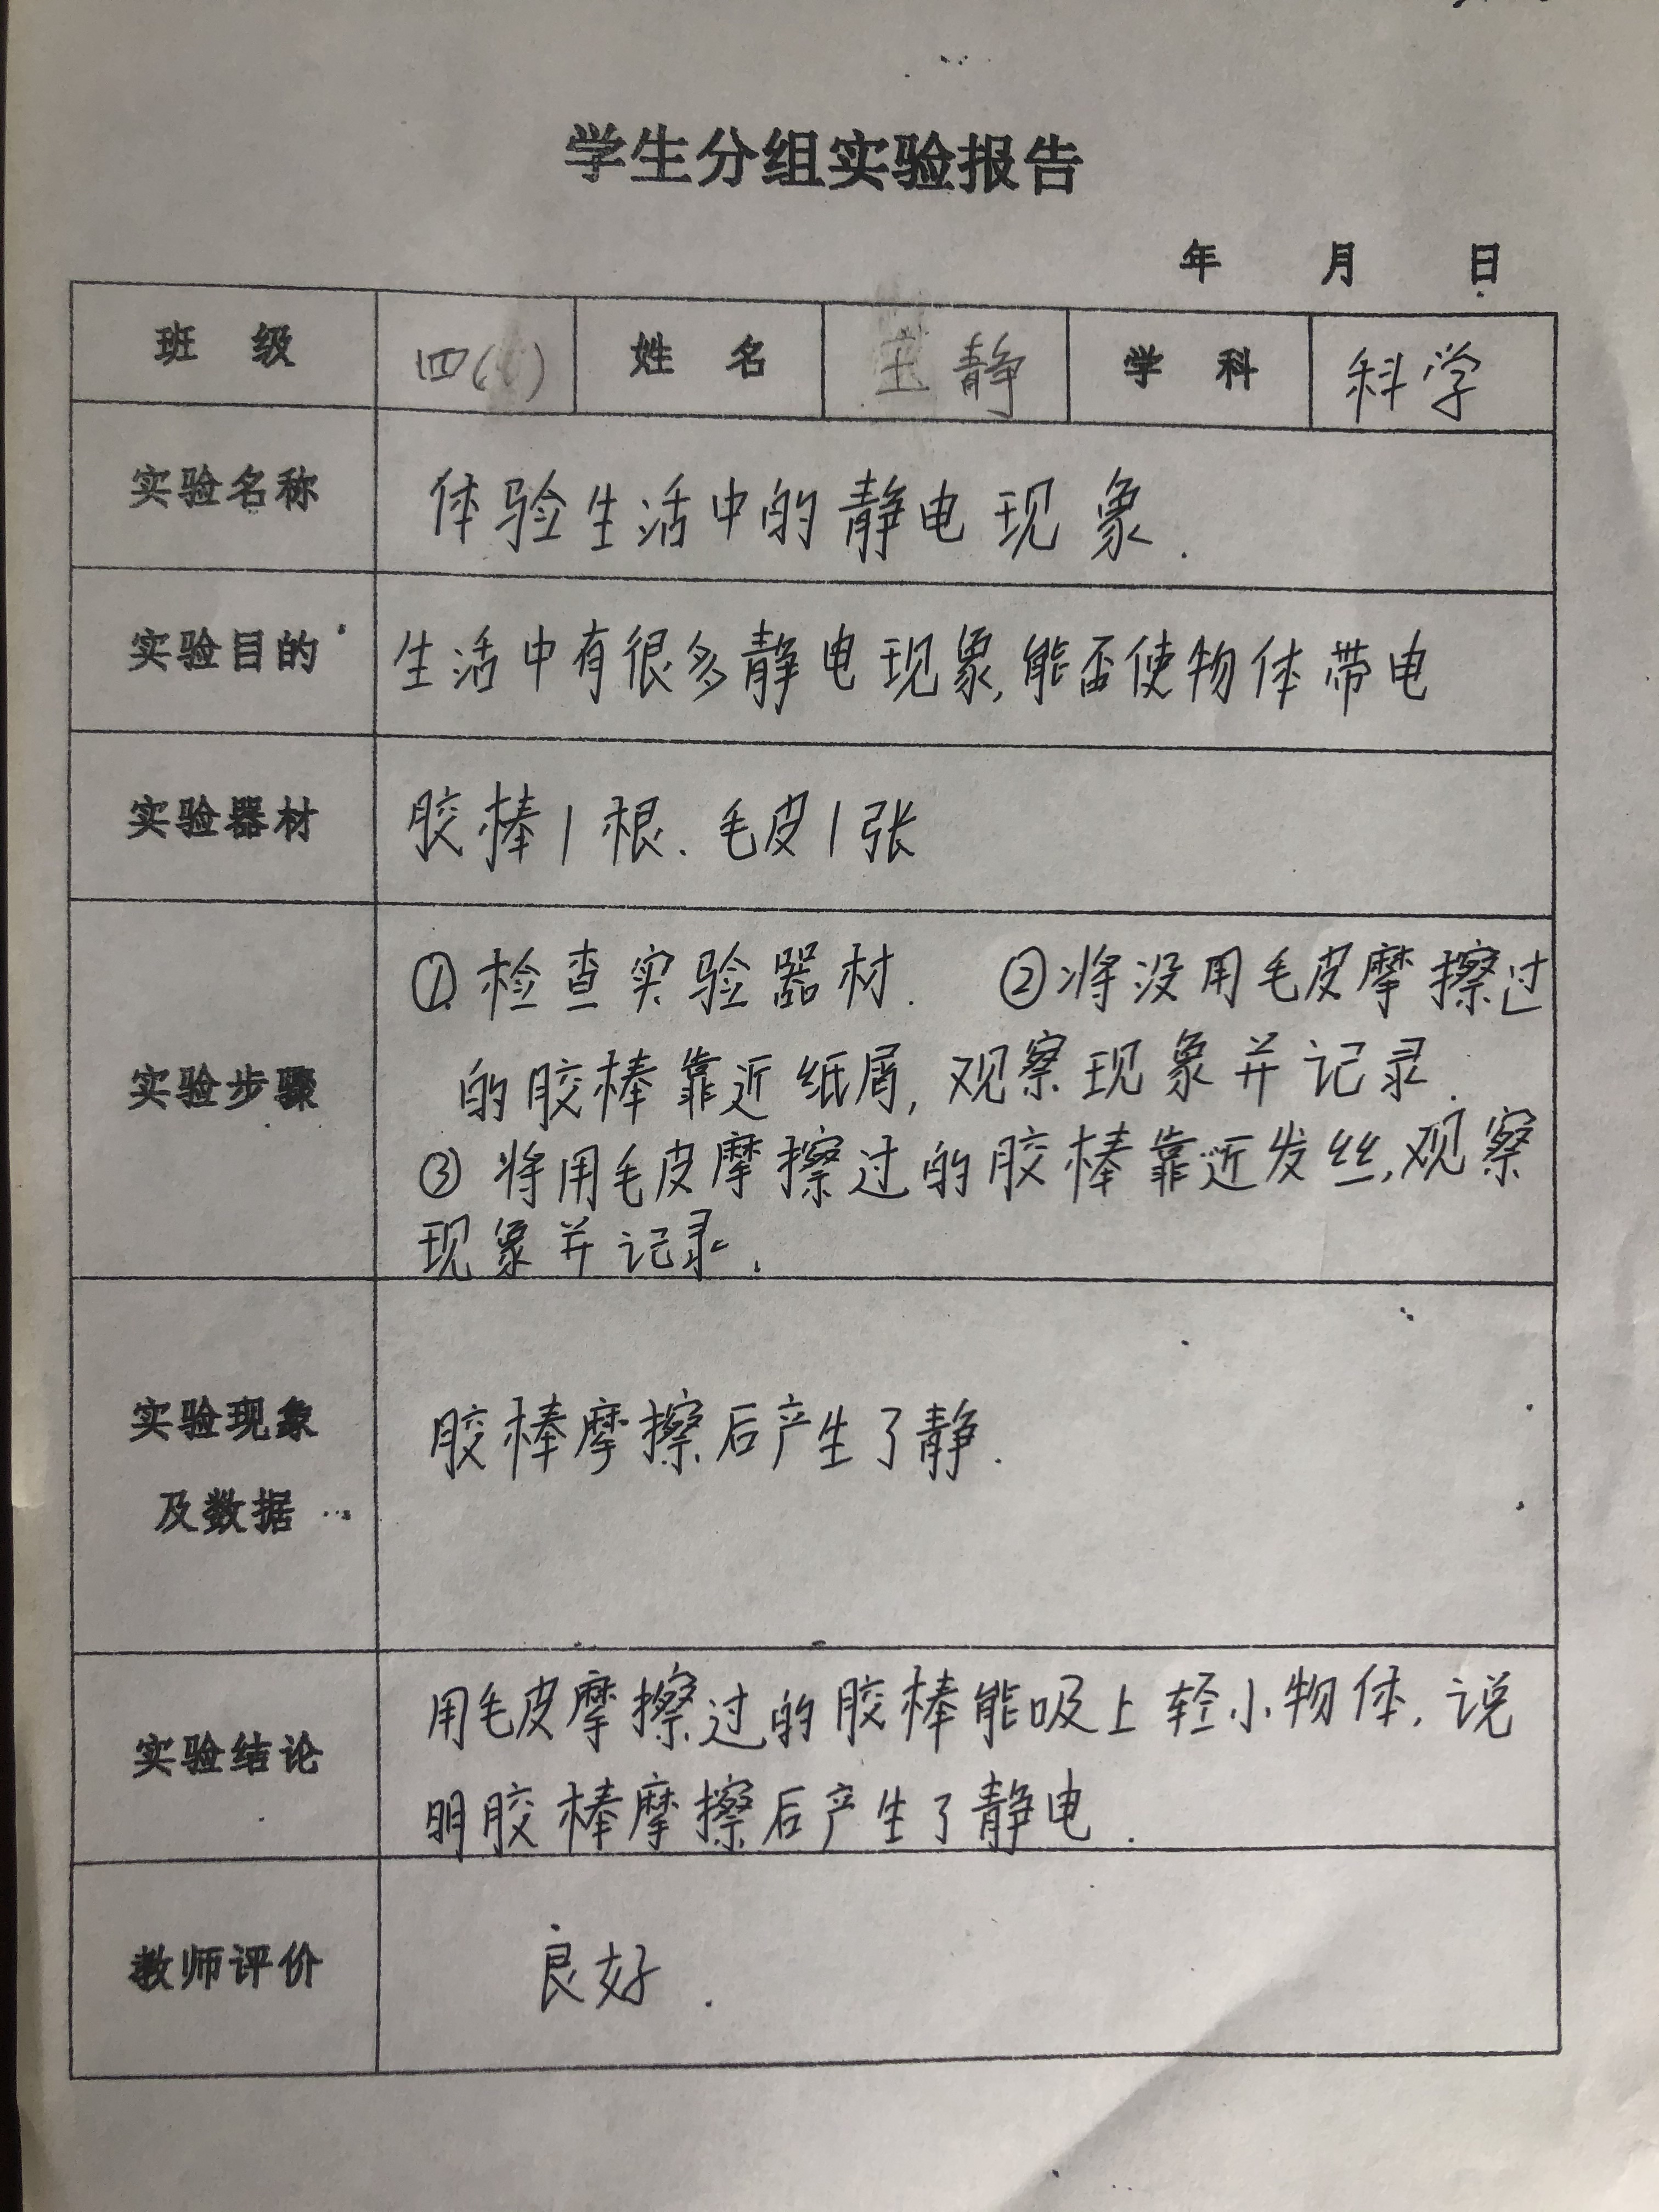 学生分组实验报告
年 月 日
班 级 四( ) 姓 名 静 学 科 科学
实验名称 体验生活中的静电现象.
实验目的 生活中有很多静电现象,能否使物体带电
实验器材 胶棒1根.毛皮1张
①检查实验器材. ②将没用毛皮摩擦过
实验步骤 的胶棒靠近纸屑,观察现象并记录.
③将用毛皮摩擦过的胶棒靠近发丝,观察
现象并记录.
实验现象 胶棒摩擦后产生了静.
及数据
用毛皮摩擦过的胶棒能吸上轻小物体.说
实验结论
明胶棒摩擦后产生了静电.
教师评价 良好.